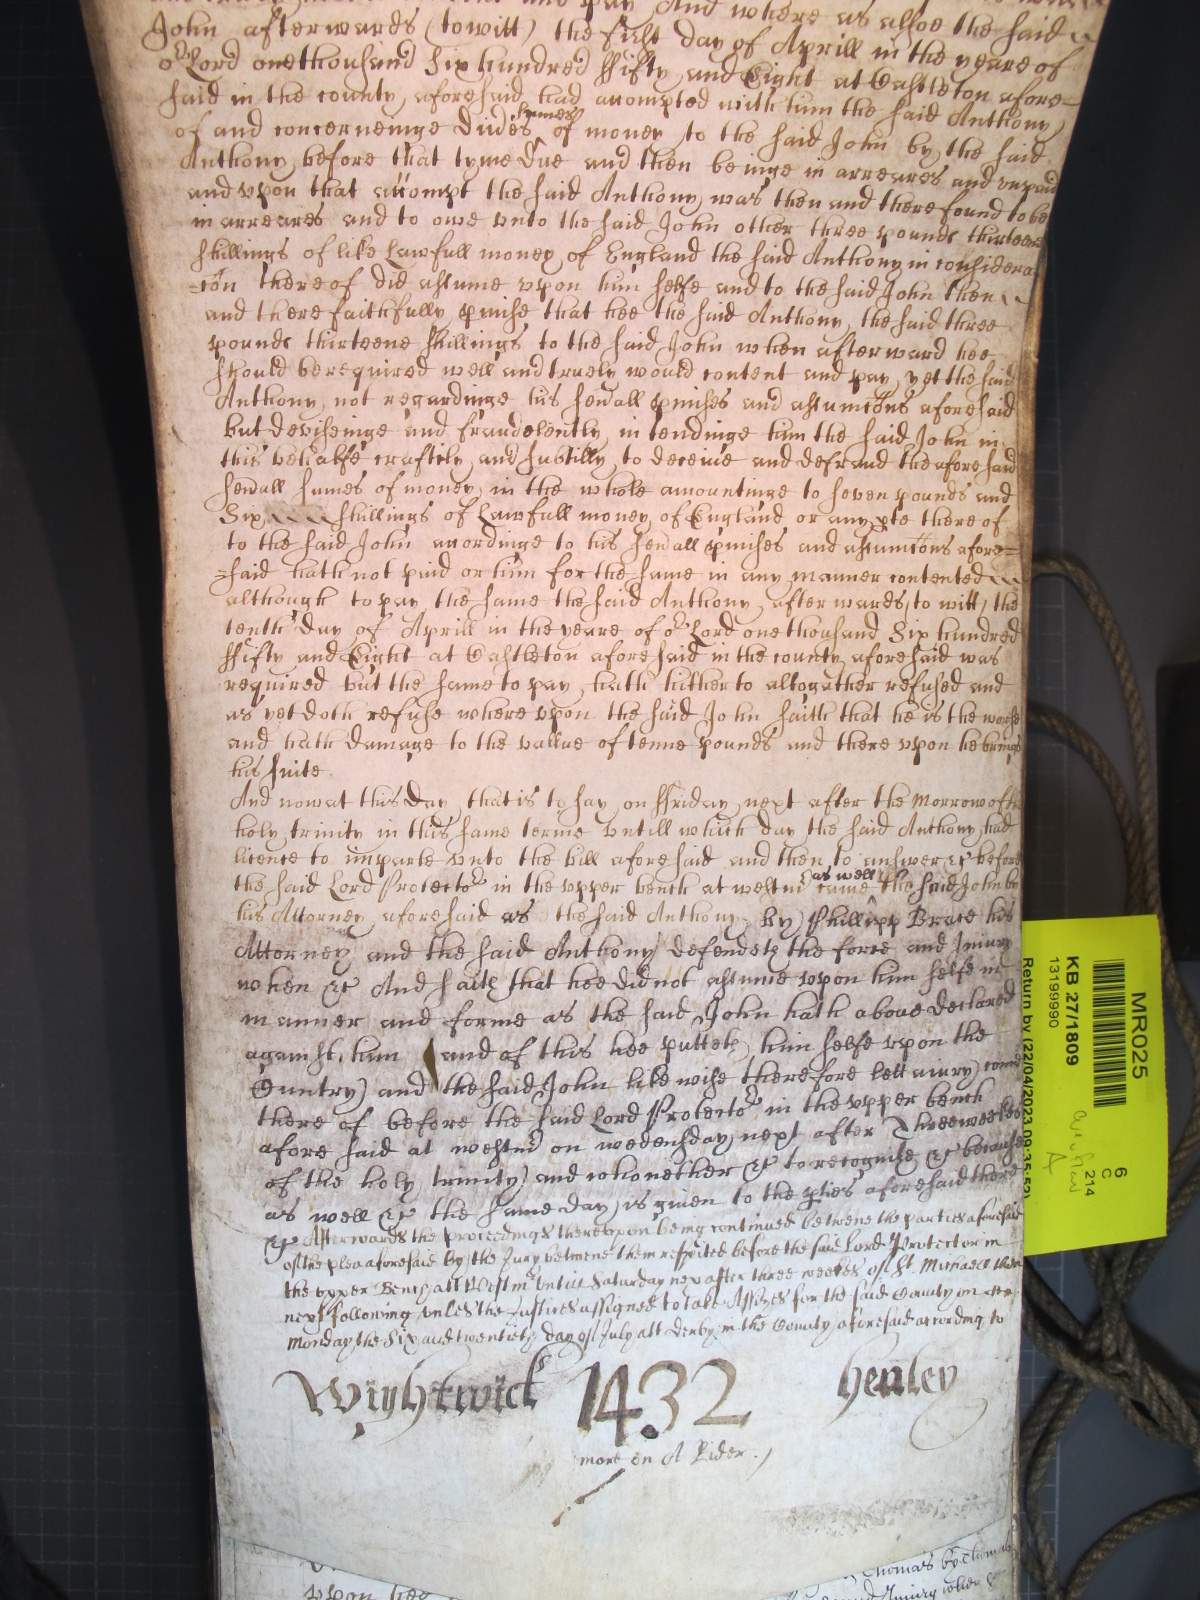 John afterwards (to witt) the first day of Aprill in the yeare of
or Lord onethousand Six hundred ffifty and Eight at Castleton afore=
said in the county aforesaid had accompted with him the said Anthony
of and concerneinge Divdes sumes of money to the said John by the said
Anthony before that tyme due and then beinge in arreares and vnpaid
and vpon that accompt the said Anthony was then and there found to be
in arreares and to owe vnto the said John other three pounds thirteene
shillings of like Lawfull money of England the said Anthony in considera
=con there of did assume vpon him selfe and to the said John then
and there faithfully pmise that hee the said Anthony the said three
pounds thirteene shillings to the said John when afterward hee
should be required well and truely would content and pay yet the said
Anthony not regardinge his sevall pmises and assumcons aforesaid
but deviseinge and fraudelently intendinge him the said John in
this behalfe craftily and subtilly to deceive and defraud the aforesaid
sevall sumes of money in the whole amountinge to seven pounds and
Six shillings of Lawfull money of England or any pte there of
to the said John accordinge to his sevall pmises and assumcons afore=
=said hath not paid or him for the same in any manner contented
although to pay the same the said Anthony afterwards (to witt) the
tenth day of Aprill in the yeare of or Lord onethousand Six hundred
ffifty and Eight at Castleton aforesaid in the county aforesaid was
required but the same to pay hath hitherto altogather refused and
as yet doth refuse where vpon the said John saith that he is the worse
and hath damage to the vallue of tenne pounds and there vpon he brings
his suite
And now at this day that is to say on ffriday next after the Morrow of the
holy trinity in this same terme vntill which day the said Anthony had
licence to imparle vnto the bill aforesaid and then to answer &c before
the said Lord Protector in the vpper bench at westmr came as well the said John by
his Attorney aforesaid as the said Anthony by Phillipp Brace his
Attorney and the said Anthony defendeth the force and Iniury
when &c And saith that hee did not assume vpon him selfe in
manner and forme as the said John hath above declared
against him and of this hee putteth him selfe vpon the
Cuntry and the said John likewise therefore lett a iury come
there of before the said Lord Protector in the vpper bench
afore said at westmr on wedensday next after Three weekes
of the holy trinity and who nether &c to recognise &c because
as well &c the same day is given to the pties aforesaid there
&c Afterwards the proceedings therevpon being continued betwene the parties aforesaid
of the plea aforesaid by the Jury betwene them respited before the said Lord Protector in
the vpper Bench att Westmr vntill Saturday next after three weekes of St. Michaell then
next following vnles the Justices assigned to take Assizes for the said County on
Monday the Six and twentieth day of July att Derby in the County aforesaid according to
Wightwick 1432 Henley
more on A Rider.
MR025
6
C
214
KB 27/1809
13199990
Return by (22/04/2023 09:35:52)
vpon hee
Thomas by Thomas
and Iniury when &c